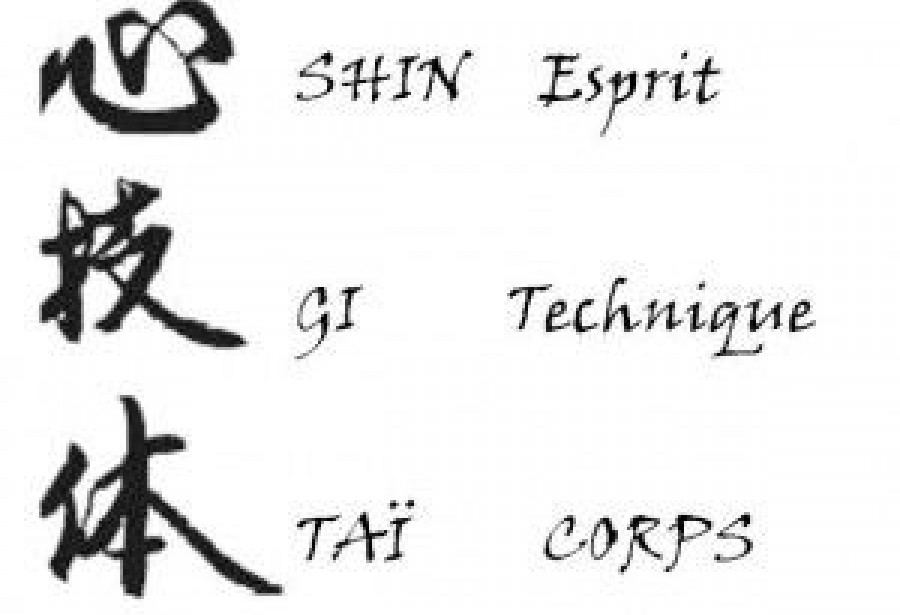 心 SHIN Esprit
技 GI Technique
体 TAÏ CORPS